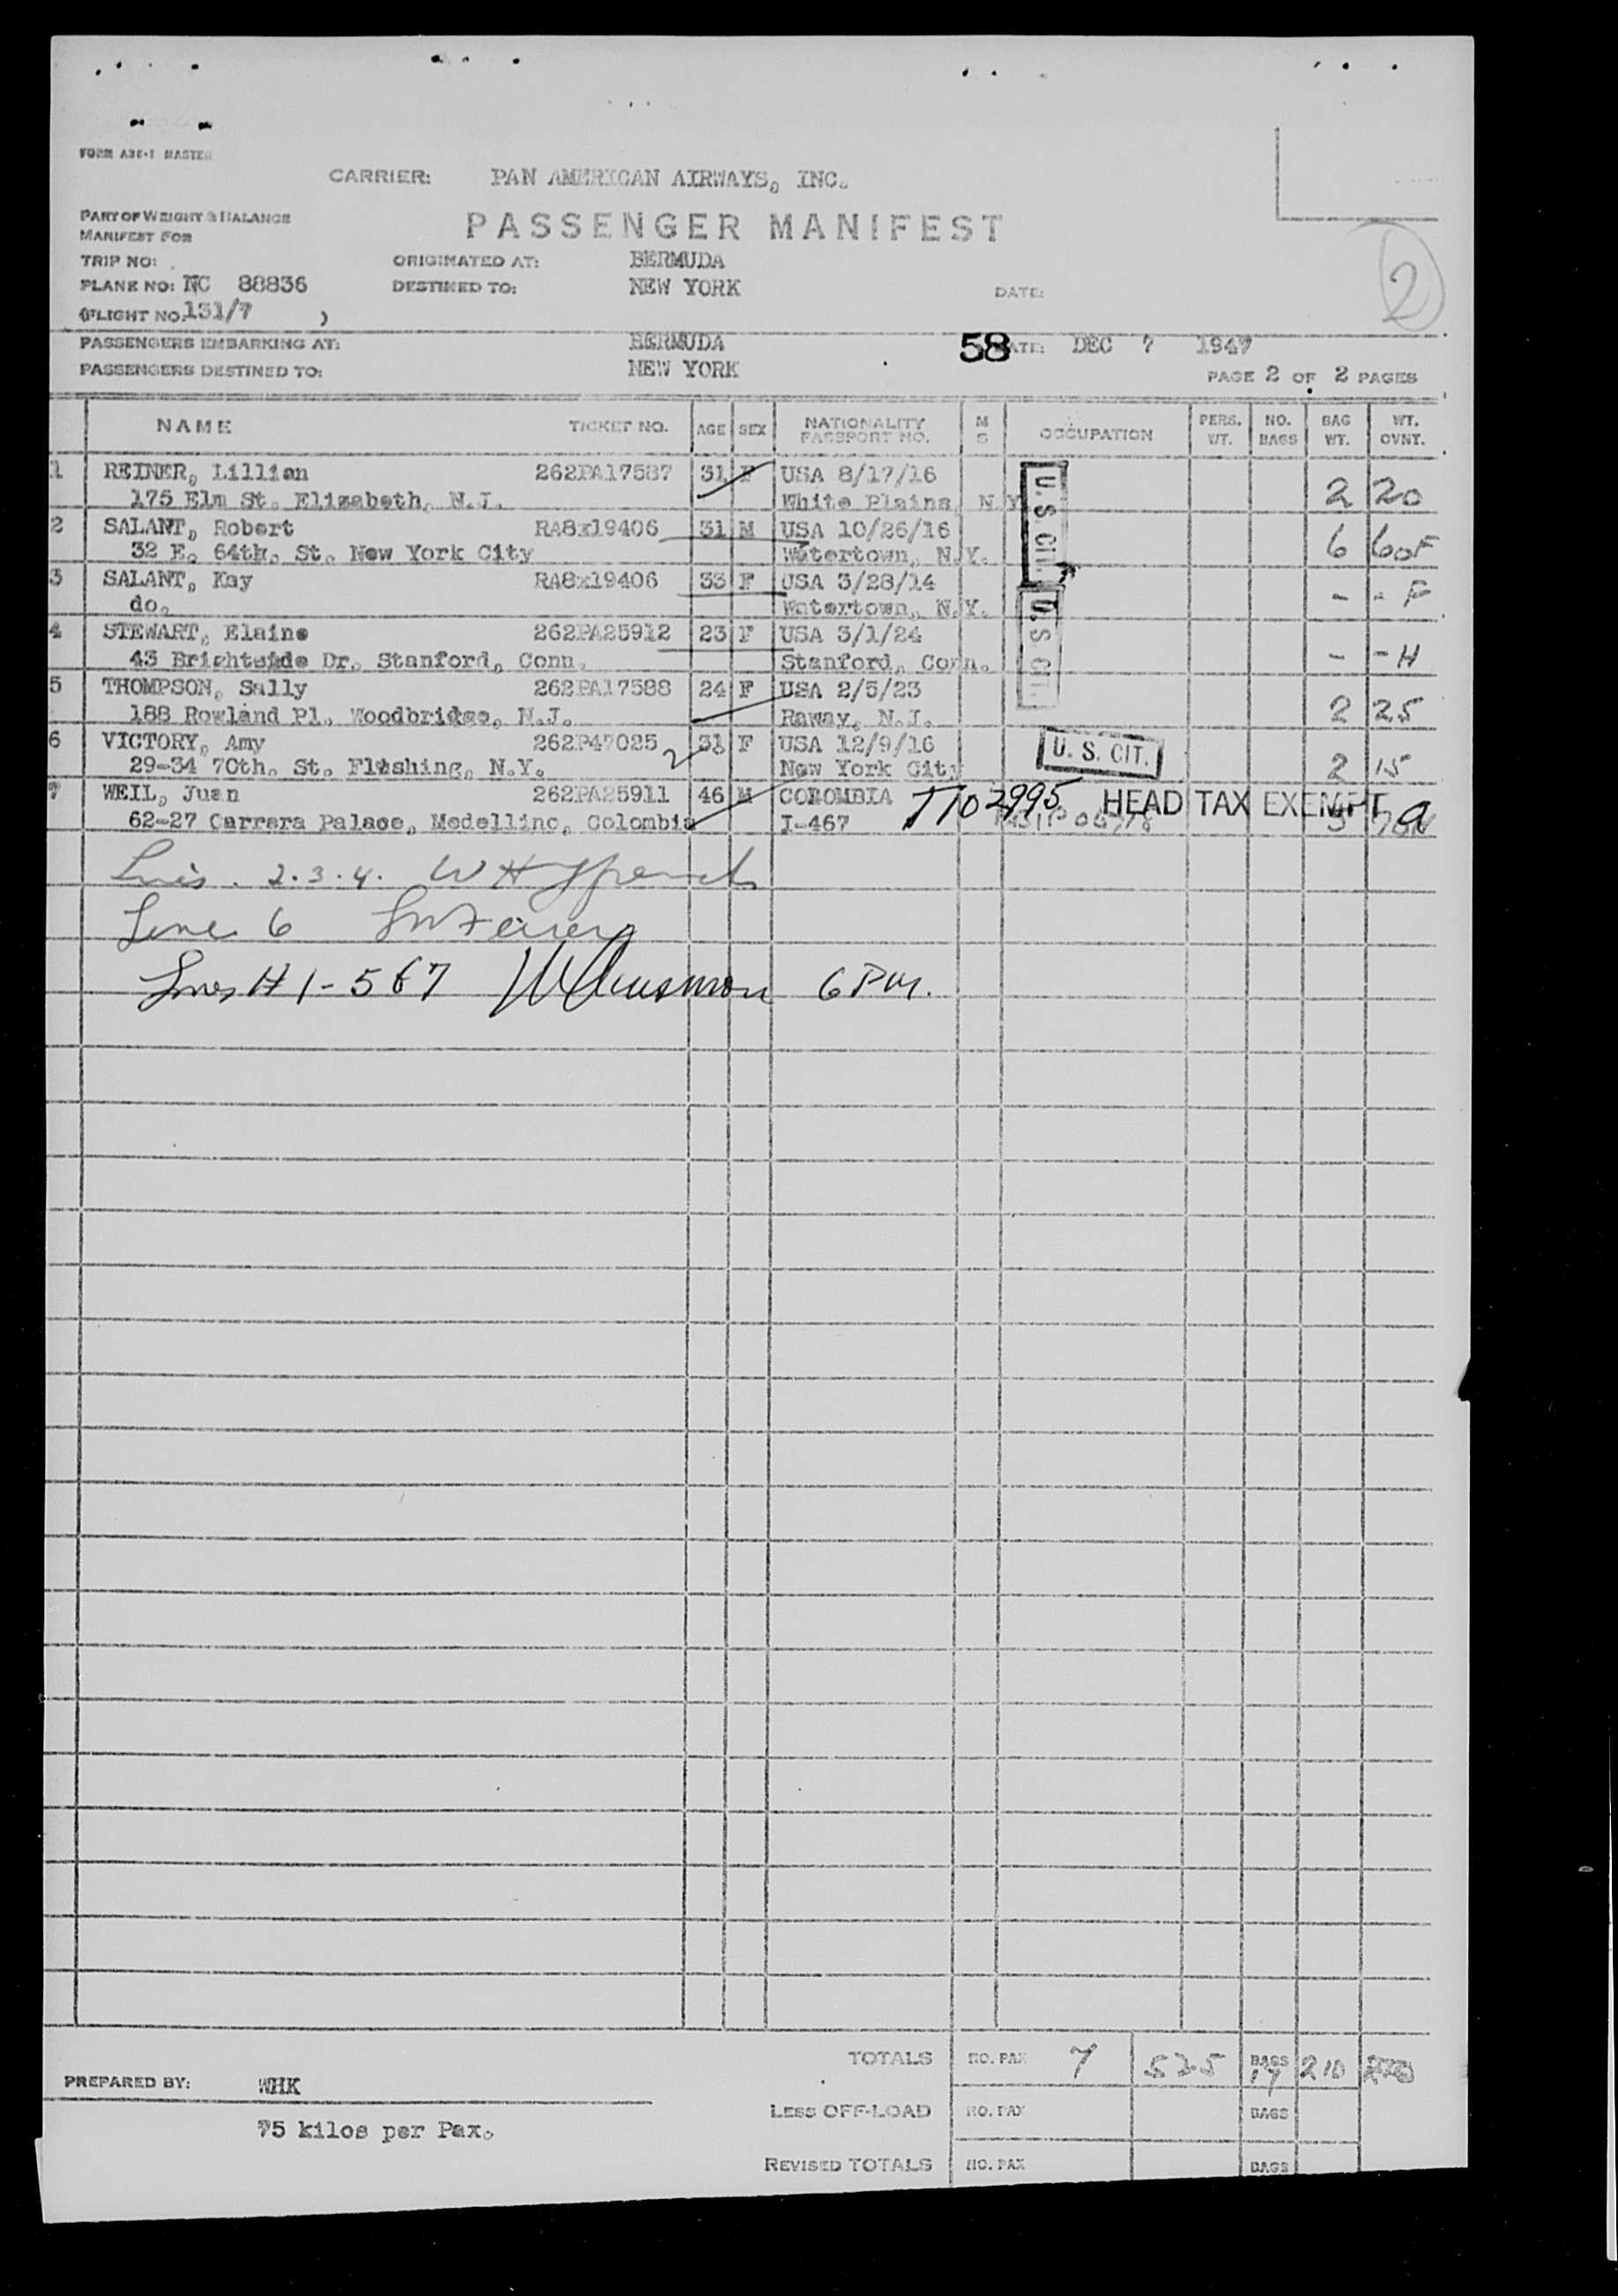 FORM A38-1 MASTER
CARRIER: PAN AMERICAN AIRWAYS, INC.
PART OF WEIGHT & BALANCE
MANIFEST FOR
PASSENGER MANIFEST
TRIP NO: ORIGINATED AT: BERMUDA
PLANE NO: NC 88836 DESTINED TO: NEW YORK DATE:
(FLIGHT NO. 131/7 )
2
PASSENGERS EMBARKING AT: BERMUDA 58 DATE: DEC 7 1947
PASSENGERS DESTINED TO: NEW YORK PAGE 2 OF 2 PAGES
NAME TICKET NO. AGE SEX NATIONALITY PASSPORT NO. M S OCCUPATION PERS. WT. NO. BAGS BAG WT. WT. OVNT.
1 REINER, Lillian 262PA17587 31 F USA 8/17/16
175 Elm St. Elizabeth, N.J. White Plains, N.Y. U.S. CIT. 2 20
2 SALANT, Robert RA8x19406 31 M USA 10/26/16
32 E. 64th. St. New York City Watertown, N.Y. 6 60F
3 SALANT, Kay RA8x19406 33 F USA 3/28/14
do. Watertown, N.Y. - - F
4 STEWART, Elaine 262PA25912 23 F USA 3/1/24 U.S CIT.
43 Brightside Dr. Stanford, Conn. Stanford, Conn. - - H
5 THOMPSON, Sally 262PA17588 24 F USA 2/5/23
188 Rowland Pl. Woodbridge, N.J. Raway, N.J. 2 25
6 VICTORY, Amy 262P47025 31 F USA 12/9/16 U. S. CIT.
29-34 70th. St. Flushing, N.Y. New York City 2 15
7 WEIL, Juan 262PA25911 46 M COLOMBIA T702995 HEAD TAX EXEMPT
62-27 Carrera Palace, Medellino, Colombia I-467
2.3.4.
Line 6
Lines # 1-5 & 7 6 P.M.
TOTALS NO. PAX 7 525 BAGS 17 210
PREPARED BY: WHK
LESS OFF-LOAD NO. PAX BAGS
75 kilos per Pax.
REVISED TOTALS NO. PAX BAGS